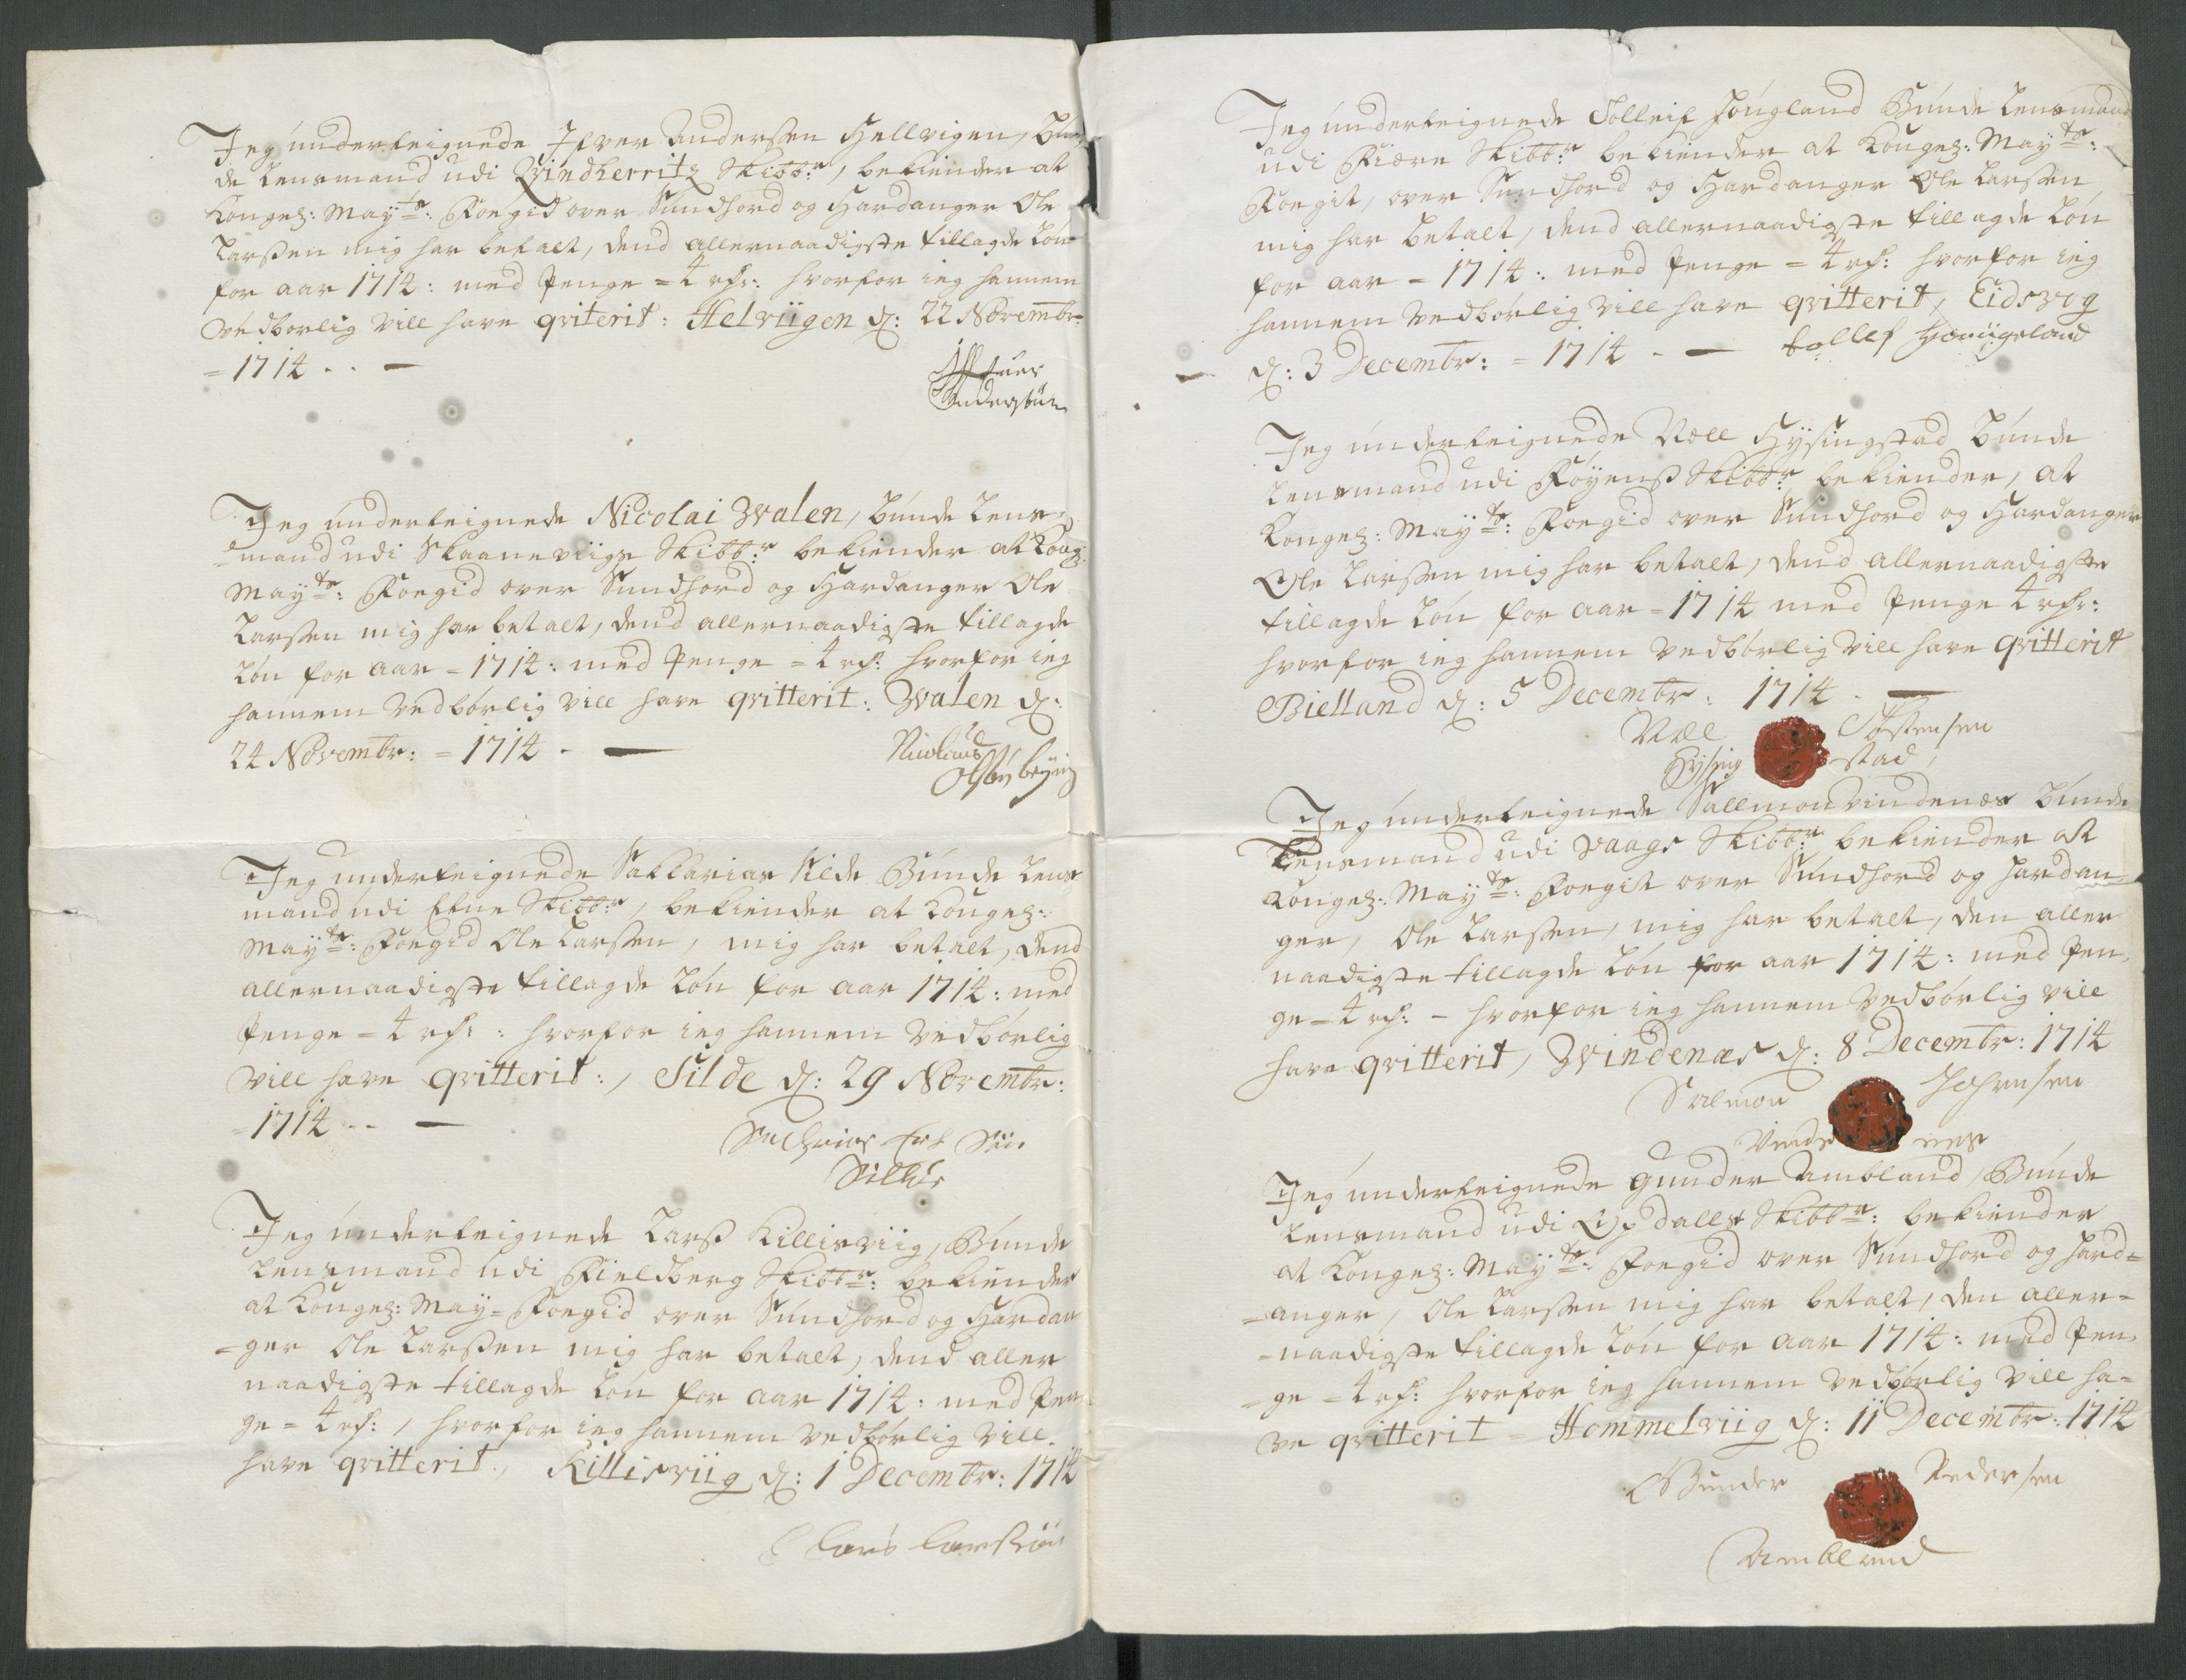 Jeg underteignede Ifver Andersen Hellvigen, Bun-
de Lensmand udi Qvindherritz Skibbr:, bekiender at
Kongel: Mayts: Foegid over Sundhord og Hardanger Ole
Larsen mig har betalt, dend allernaadigste tillagde Løn
for aar 1714: med Penge = 4 rdr: hvorfor ieg hannem
vedbørlig vill have qviterit: Helviigen d: 22 Novembr:
= 1714 . . —
Iffuer
Andersøn
Jeg underteignede Nicolai Walen, bunde Lens-
-mand udi Skaaneviigs Skibbr: bekiender at Kong:
Mayts: Foegid over Sundhord og Hardanger Ole
Larsen mig har betalt, dend allernaadigste tillagde
Løn for aar = 1714: med Penge = 4 rdr: hvorfor ieg
hannem vedbørlig vill have qvitterit: Walen d:
24 Novembr: = 1714 . —
Nicolaus
Jeg underteignede Sakkarias Silde Bunde Lens
mand udi Etne Skibbr:, bekiender at Kongel:
Mayts: Foegid Ole Larsen, mig har betalt, dend
allernaadigste tillagde Løn for aar 1714: med
Penge = 4 rdr: hvorfor ieg hannem vedbørlig
vill have qvitterit:, Silde d: 29 Novembr:
= 1714 -- —
Sachrias
Jeg underteignede Lars Killisviig, Bunde
Lensmand udi Fieldberg Skibbr: bekiender
at Kongel: May= Foegid over Sundhord og Hardan
=ger Ole Larsen mig har betalt, dend aller
naadigste tillagde Løn for aar 1714: med Pen-
ge = 4 rdr:, hvorfor ieg hannem vedbørlig vill
have qvitterit., Killisviig d: 1 Decembr: 1714
Lars Larssøn
Jeg underteignede Tolleif Hougland Bunde Lensmand
udi Fiære Skibbr: bekiender at Kongel: Mayts:
Foegit, over Sundhord og Hardanger Ole Larsen
mig har betalt, dend allernaadigste tillagde Løn
for aar = 1714: med Penge = 4 rdr: hvorfor ieg
hannem vedbørlig vill have qvitterit, Eidsvog
d: 3 Decembr: = 1714 . — tollef Houigeland
Jeg underteignede Næll Hysingstad bunde
Lensmand udi Føyens Skibbr: bekiender, at
Kongel: Mayts: Foegid over Sundhord og Hardanger
Ole Larsen mig har betalt, dend allernaadigste
tillagde Løn for aar = 1714 med Penge 4 rdr:
hvorfor ieg hannem vedbørlig vill have qvitterit
Bielland d: 5 Decembr: 1714 . —
Næll Østensen
Hysing stad,
Jeg underteignede Sallmon Vindenes bunde
Lensmand udi Vaags Skibbr: bekiender at
Kongel: Mayts: Foegit over Sundhord og Hardan-
ger, Ole Larsen, mig har betalt, den aller
naadigste tillagde Løn for aar 1714: med Pen-
ge = 4 rdr: - hvorfor ieg hannem vedbørlig vill
have qvitterit, Windenæs d: 8 Decembr: 1714
Salmon Johansen
Vinde nes
Jeg underteignede Gunder Ambland, Bunde
Lensmand udi Opdalls Skibbr: bekiender
at Kongel: Mayts: Foegid over Sundhord og Hard=
=anger, Ole Larsen mig har betalt, den aller=
=naadigste tillagde Løn for aar 1714: med Pen-
=ge = 4 rdr: hvorfor ieg hannem vedbørlig vill ha=
ve qvitterit = Hommelviig d: 11 Decembr: 1714
Gunder Pedersen
Ambland